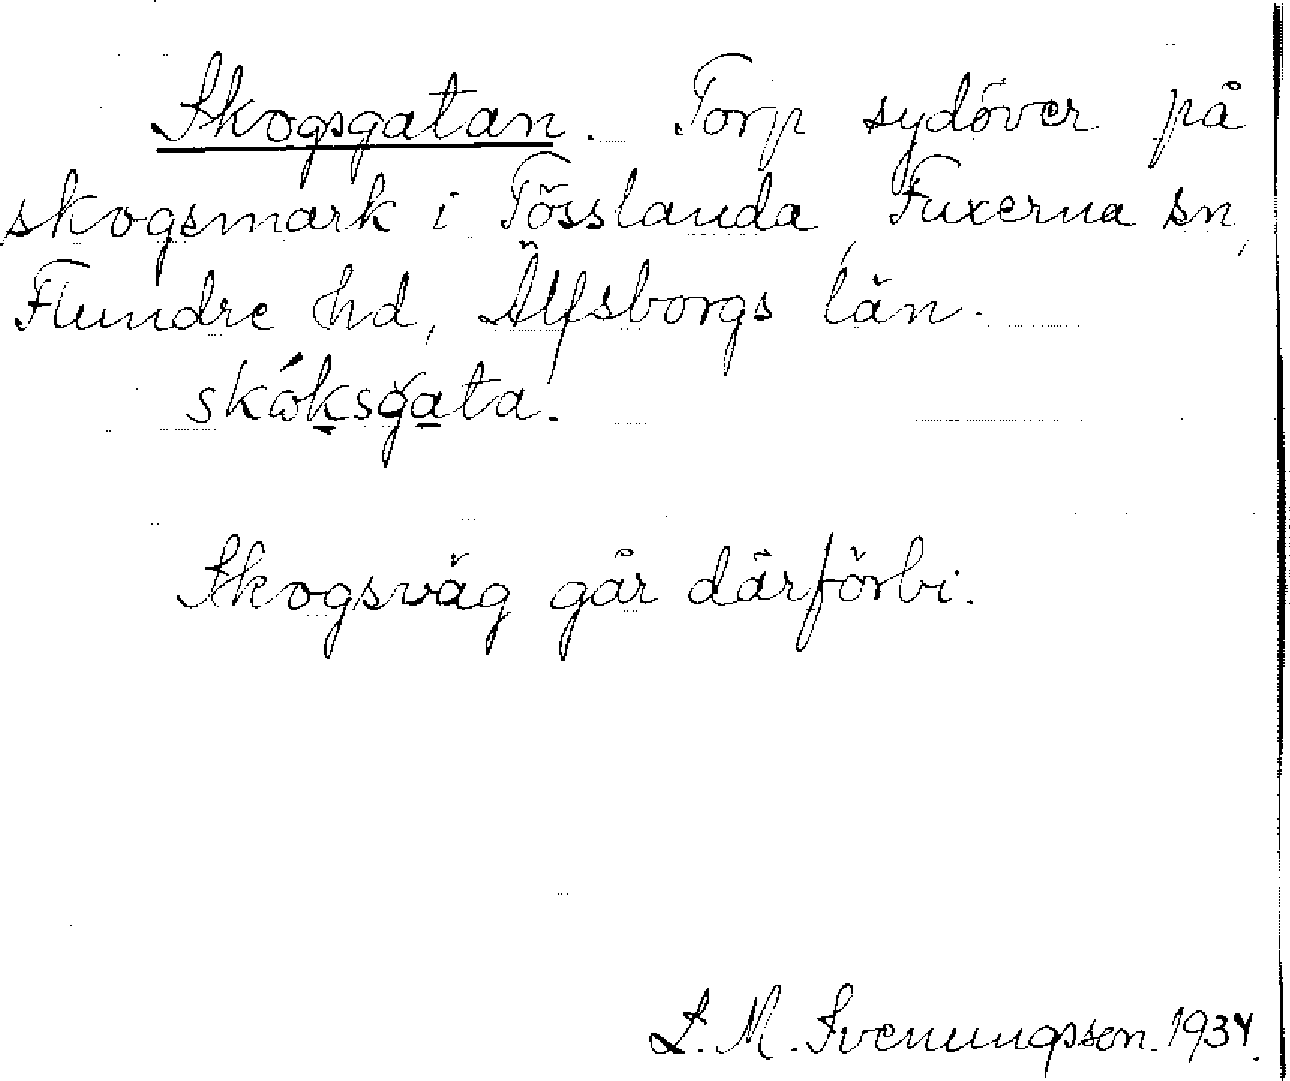 Skogsgatan. Torp sydöver på
skogsmark i Tösslanda, Fuxerna sn,
Flundre hd, Älfsborgs län.
skóksgata.
Skogsväg går därförbi.
L. M. Svenungsson. 1934.